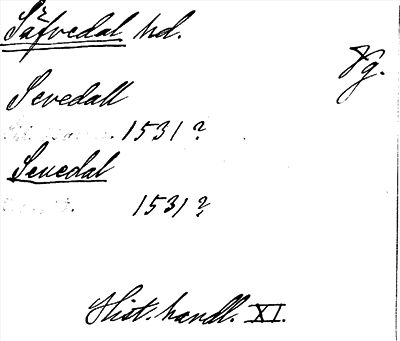 Säfvedal hd.
Ög.
Sevedall
1531?
Sevedal
1531?
Hist. handl. XI.